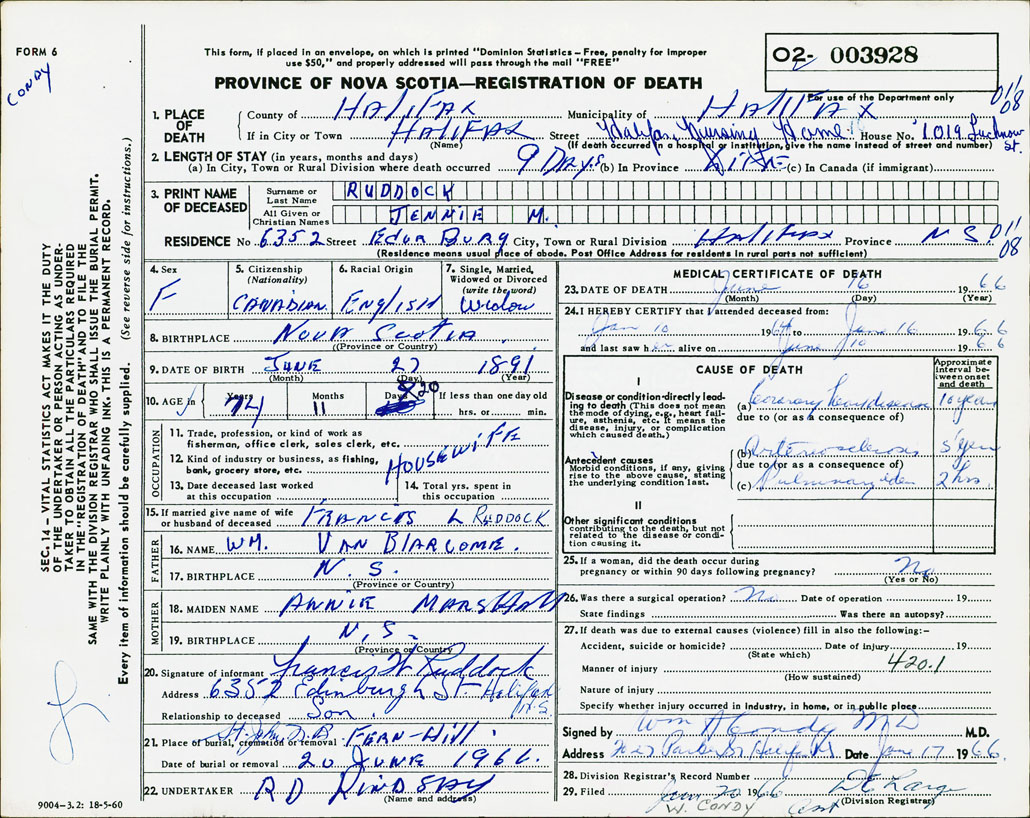 FORM 6
CONDY
This form, if placed in an envelope, on which is printed "Dominion Statistics – Free, penalty for improper
use $50," and properly addressed will pass through the mail "FREE"
PROVINCE OF NOVA SCOTIA—REGISTRATION OF DEATH
02- 003928
For use of the Department only
011/08
1. PLACE OF DEATH County of HALIFAX Municipality of HALIFAX
If in City or Town HALIFAX Street Halifax Nursing Home House No. 1019 Lucknow St.
(Name) (If death occurred in a hospital or institution, give the name instead of street and number)
2. LENGTH OF STAY (in years, months and days)
(a) In City, Town or Rural Division where death occurred 9 Days (b) In Province LIFE (c) In Canada (if immigrant)
3. PRINT NAME OF DECEASED Surname or Last Name RUDDOCK
All Given or Christian Names JENNIE M.
RESIDENCE No 6352 Street Edin Burg City, Town or Rural Division HALIFAX Province N S. 011/08
(Residence means usual place of abode. Post Office Address for residents in rural parts not sufficient)
4. Sex F
5. Citizenship (Nationality) CANADIAN
6. Racial Origin English
7. Single, Married, Widowed or Divorced (write the word) Widow
8. BIRTHPLACE NOVA SCOTIA
(Province or Country)
9. DATE OF BIRTH JUNE 27 1891
(Month) (Day) (Year)
10. AGE in Years 74 Months 11 Days 20 If less than one day old
hrs. or min.
OCCUPATION
11. Trade, profession, or kind of work as fisherman, office clerk, sales clerk, etc. HOUSEWIFE
12. Kind of industry or business, as fishing, bank, grocery store, etc.
13. Date deceased last worked at this occupation
14. Total yrs. spent in this occupation
15. If married give name of wife or husband of deceased FRANCIS L RUDDOCK
FATHER
16. NAME WM. VAN BLARCOME.
17. BIRTHPLACE N. S.
(Province or Country)
MOTHER
18. MAIDEN NAME ANNIE MARSHALL
19. BIRTHPLACE N. S.
(Province or Country)
20. Signature of informant Francis W Ruddock
Address 6352 Edinburgh St. Halifax N.S.
Relationship to deceased Son.
21. Place of burial, cremation or removal St. John N.B FERN-Hill.
Date of burial or removal 20 JUNE 1966.
22. UNDERTAKER RD LINDSAY
(Name and address)
9004–3.2: 18-5-60
MEDICAL CERTIFICATE OF DEATH
23. DATE OF DEATH June 16 1966
(Month) (Day) (Year)
24. I HEREBY CERTIFY that I attended deceased from:
Jan 10 1964 to June 16 1966
and last saw her alive on June 10 1966
CAUSE OF DEATH
Approximate interval between onset and death
I
Disease or condition-directly leading to death (This does not mean the mode of dying, e.g., heart failure, asthenia, etc. It means the disease, injury, or complication which caused death.)
(a) Coronary 10 years
due to (or as a consequence of)
Antecedent causes
Morbid conditions, if any, giving rise to the above cause, stating the underlying condition last.
(b) Arteriosclerosis 5 years
due to (or as a consequence of)
(c) Pulmonary edema 2 hrs.
II
Other significant conditions contributing to the death, but not related to the disease or condition causing it.
25. If a woman, did the death occur during pregnancy or within 90 days following pregnancy? No
(Yes or No)
26. Was there a surgical operation? No Date of operation 19
State findings Was there an autopsy?
27. If death was due to external causes (violence) fill in also the following:–
Accident, suicide or homicide? Date of injury 19
(State which)
Manner of injury 420.1
(How sustained)
Nature of injury
Specify whether injury occurred in Industry, in home, or in public place
Signed by Wm A Condy MD M.D.
Address Halifax Date June 17 1966
28. Division Registrar's Record Number
29. Filed June 20 1966
(Division Registrar)
W. CONDY
SEC. 14 – VITAL STATISTICS ACT MAKES IT THE DUTY
OF THE UNDERTAKER OR PERSON ACTING AS UNDER-
TAKER TO OBTAIN ALL THE PARTICULARS REQUIRED
IN THE "REGISTRATION OF DEATH" AND TO FILE THE
SAME WITH THE DIVISION REGISTRAR WHO SHALL ISSUE THE BURIAL PERMIT.
WRITE PLAINLY WITH UNFADING INK. THIS IS A PERMANENT RECORD.
Every item of information should be carefully supplied. (See reverse side for instructions.)